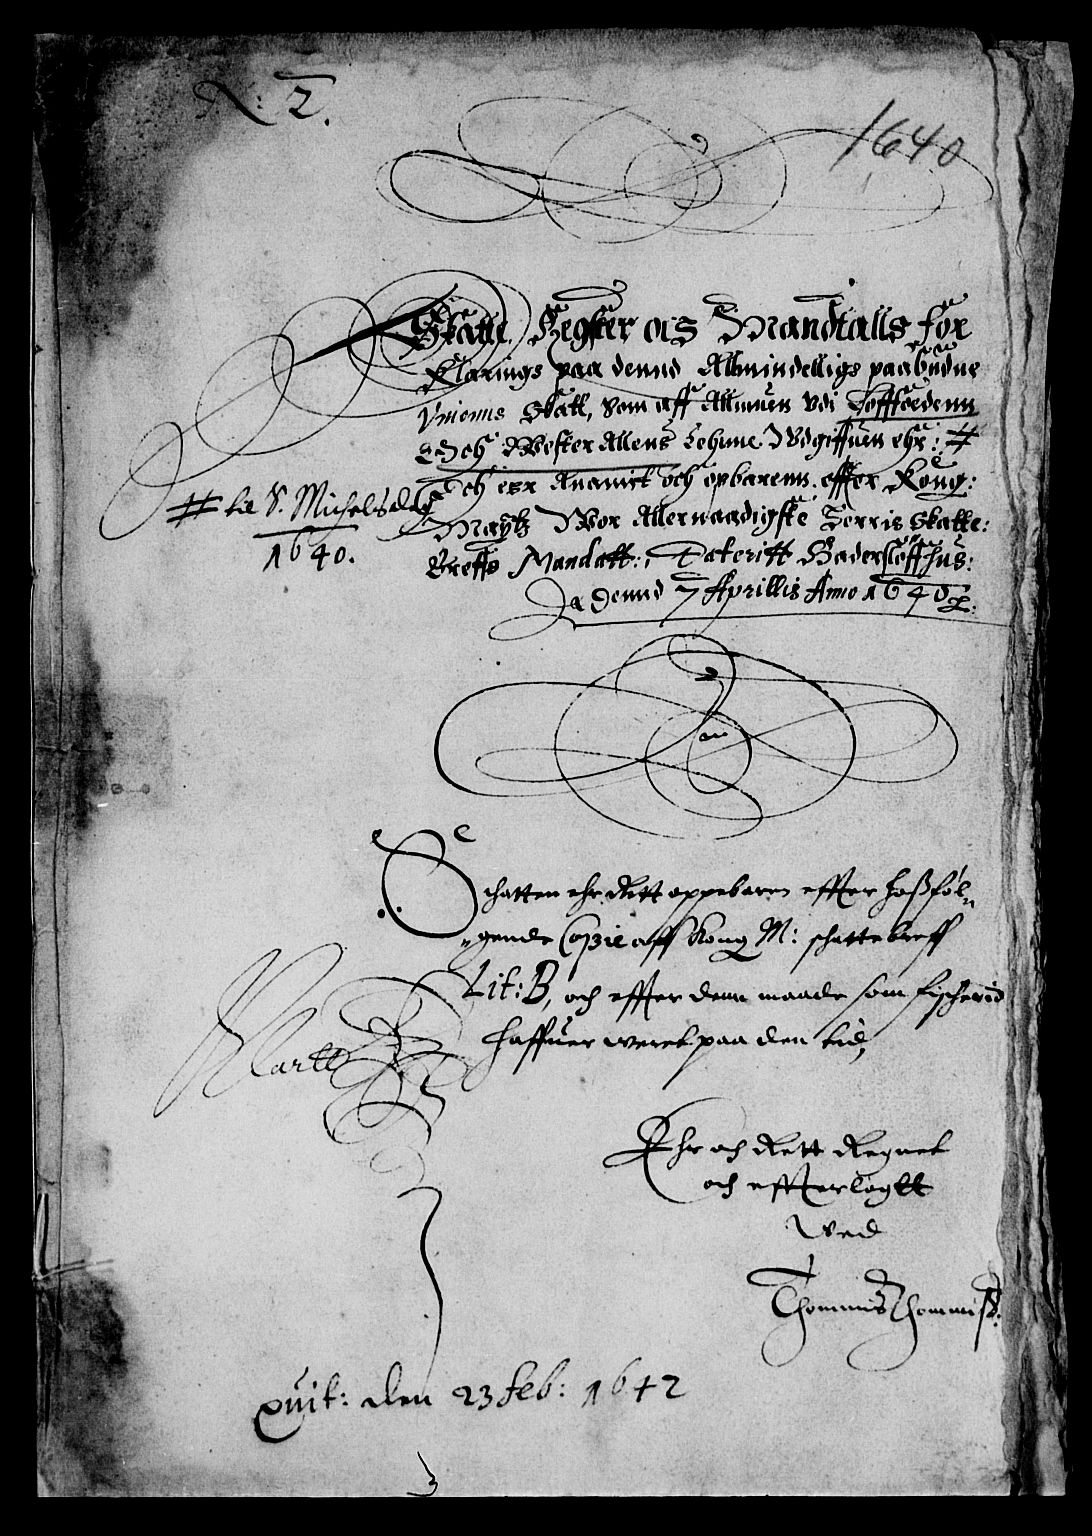 N: 2.
1640
Skatte Register och Mandtalls for
Klarings paa dennd Allmindelligs paabudne
Vnionns Skatt, Som aff Allmuen vdi Lofföedenn
Och Wester Allens Lehnne Vdgiffuen ehr: #
Och err Anamit och opbarenn effter Kong:
Maytz Wor Allernaadigste Herris Skatte:
Breffs Mandatt: Dateritt Haderslöffhus:
Dennd 7 Aprillis Anno 1640
# til S. Michelsdag
1640.
Schatten ehr Rett oppebaren effter hoßföl-
gende Copie aff Kong M: schattebreff
Lit: B, och effter denn maade som fischerid
haffuer weret paa den tid,
Ehr och Rett Regnet
och effterlagtt
Wed
Thommis Thommiß:
quit: den 23 feb: 1642
3